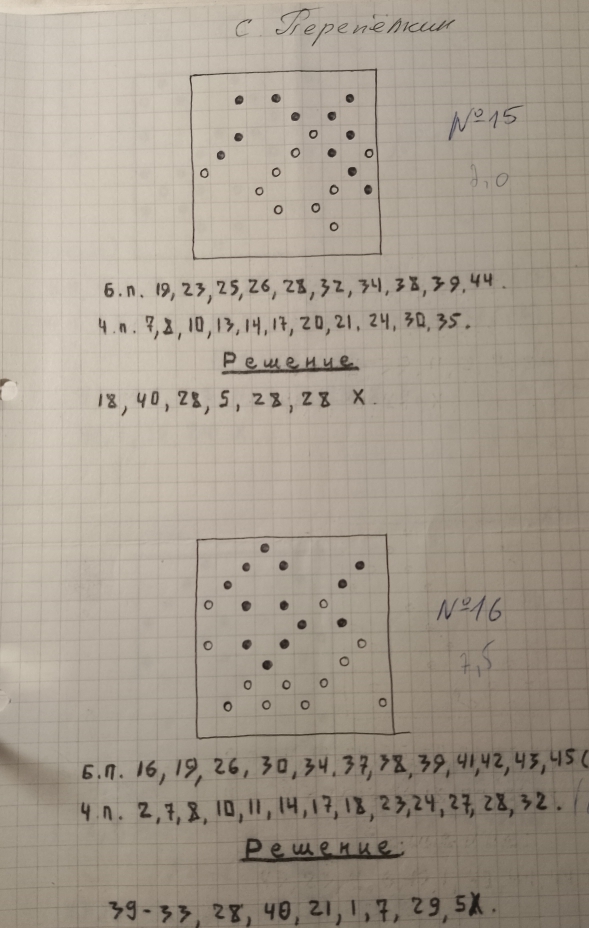 с Перепёлкин
№15
7,0
б.п. 19, 23, 25, 26, 28, 32, 34, 38, 39, 44.
ч.п. 7, 8, 10, 13, 14, 17, 20, 21, 24, 30, 35.
Решение
18, 40, 28, 5, 28, 28 X.
№16
7,5
б.п. 16, 19, 26, 30, 34, 37, 38, 39, 41, 42, 43, 45(
ч.п. 2, 7, 8, 10, 11, 14, 17, 18, 23, 24, 27, 28, 32. (
Решение:
39-33, 28, 40, 21, 1, 7, 29, 5X.